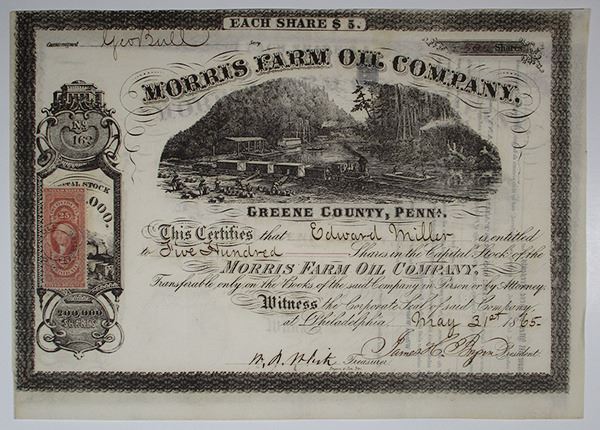 EACH SHARE $ 5.
Geo Bull
500 Shares
MORRIS FARM OIL COMPANY.
No.
162
CAPITAL STOCK
,000.
25
200,000
SHARES
GREENE COUNTY, PENNA.
This Certifies that Edward Miller is entitled
to Five Hundred Shares in the Capital Stock of the
MORRIS FARM OIL COMPANY,
Transferable only on the Books of the said Company in Person or by Attorney.
Witness the Corporate Seal of said Company
at Philadelphia May 31st 1865.
Treasurer.
President.